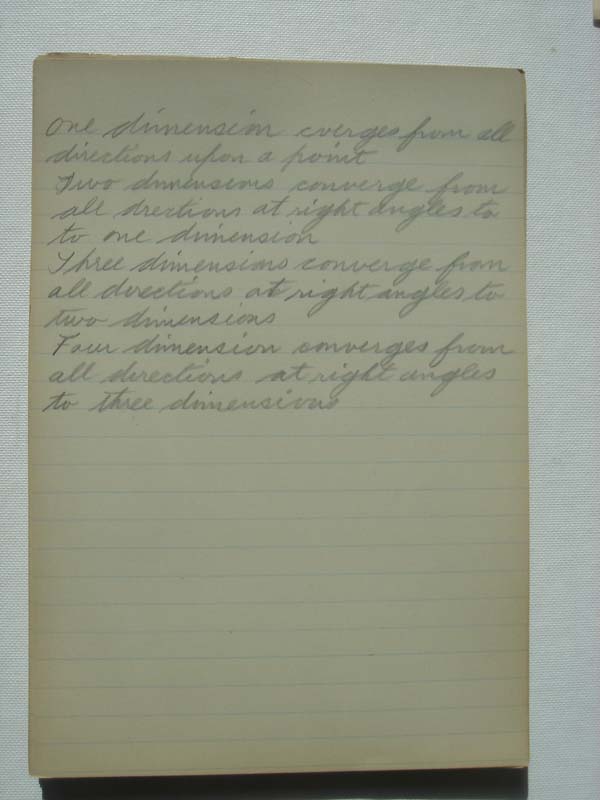 One dimension cverges from all
directions upon a point
Two dimensions converge from
all drections at right angles to
to one dimension
Three dimensions converge from
all directions at right angles to
two dimensions
Four dimension converges from
all directions at right angles
to three dimensions